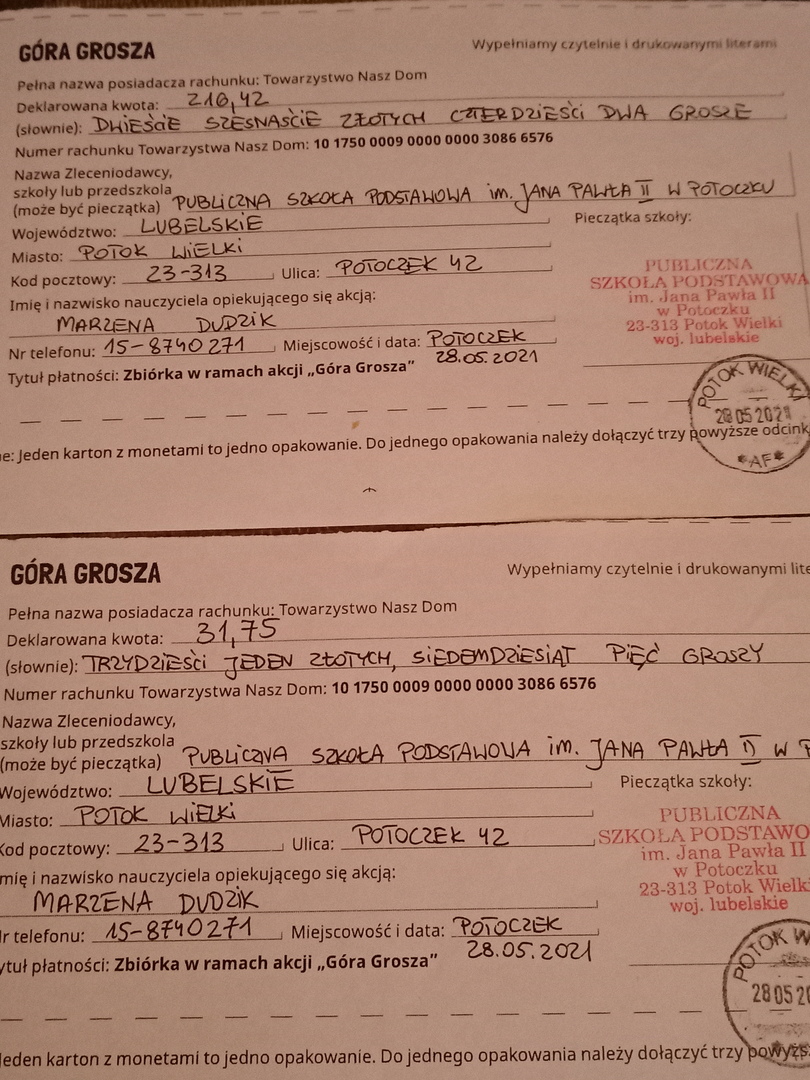 GÓRA GROSZA
Wypełniamy czytelnie i drukowanymi literami
Pełna nazwa posiadacza rachunku: Towarzystwo Nasz Dom
Deklarowana kwota: 216,42
(słownie): DWIEŚCIE SZESNAŚCIE ZŁOTYCH CZTERDZIEŚCI DWA GROSZE
Numer rachunku Towarzystwa Nasz Dom: 10 1750 0009 0000 0000 3086 6576
Nazwa Zleceniodawcy,
szkoły lub przedszkola
(może być pieczątka) PUBLICZNA SZKOŁA PODSTAWOWA im. JANA PAWŁA II W POTOCZKU
Województwo: LUBELSKIE
Pieczątka szkoły:
Miasto: POTOK WIELKI
Kod pocztowy: 23-313 Ulica: POTOCZEK 42
Imię i nazwisko nauczyciela opiekującego się akcją:
MARZENA DUDZIK
Nr telefonu: 15-8740271 Miejscowość i data: POTOCZEK
28.05.2021
Tytuł płatności: Zbiórka w ramach akcji „Góra Grosza”
PUBLICZNA
SZKOŁA PODSTAWOWA
im. Jana Pawła II
w Potoczku
23-313 Potok Wielki
woj. lubelskie
POTOK WIELKI
28 05 2021
*AF*
e: Jeden karton z monetami to jedno opakowanie. Do jednego opakowania należy dołączyć trzy powyższe odcink
GÓRA GROSZA
Wypełniamy czytelnie i drukowanymi lite
Pełna nazwa posiadacza rachunku: Towarzystwo Nasz Dom
Deklarowana kwota: 31,75
(słownie): TRZYDZIEŚCI JEDEN ZŁOTYCH, SIEDEMDZIESIĄT PIĘĆ GROSZY
Numer rachunku Towarzystwa Nasz Dom: 10 1750 0009 0000 0000 3086 6576
Nazwa Zleceniodawcy,
szkoły lub przedszkola
(może być pieczątka) PUBLICZNA SZKOŁA PODSTAWOWA im. JANA PAWŁA II W P
Województwo: LUBELSKIE
Pieczątka szkoły:
Miasto: POTOK WIELKI
Kod pocztowy: 23-313 Ulica: POTOCZEK 42
mię i nazwisko nauczyciela opiekującego się akcją:
MARZENA DUDZIK
r telefonu: 15-8740271 Miejscowość i data: POTOCZEK
28.05.2021
ytuł płatności: Zbiórka w ramach akcji „Góra Grosza”
PUBLICZNA
SZKOŁA PODSTAWO
im. Jana Pawła II
w Potoczku
23-313 Potok Wielk
woj. lubelskie
POTOK W
28 05 20
Jeden karton z monetami to jedno opakowanie. Do jednego opakowania należy dołączyć trzy powyżs